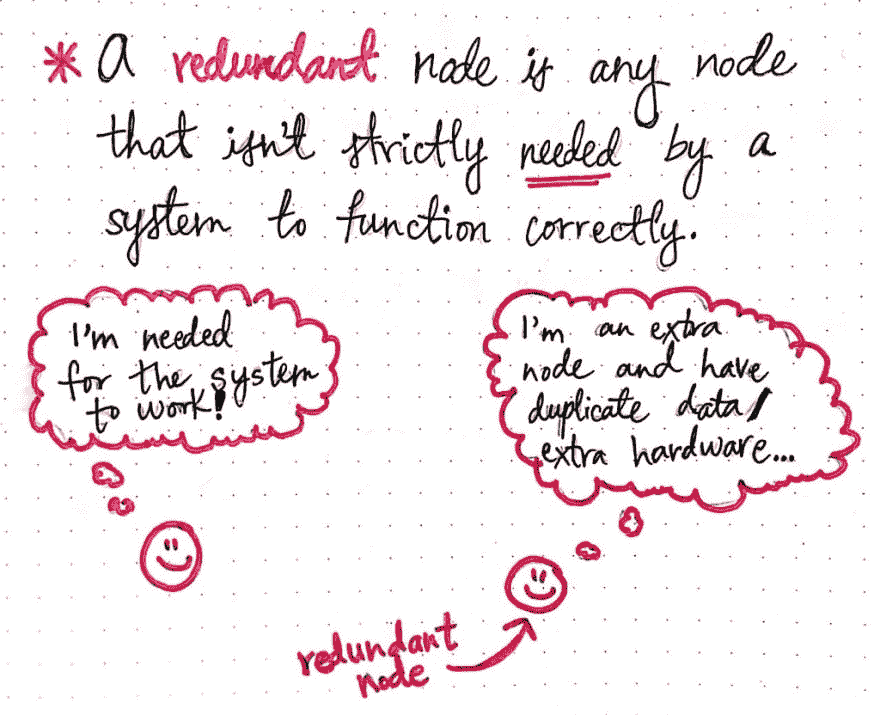 * A redundant node is any node
that isn't strictly needed by a
system to function correctly.
I'm needed
for the system
to work!
I'm an extra
node and have
duplicate data/
extra hardware...
redundant
node